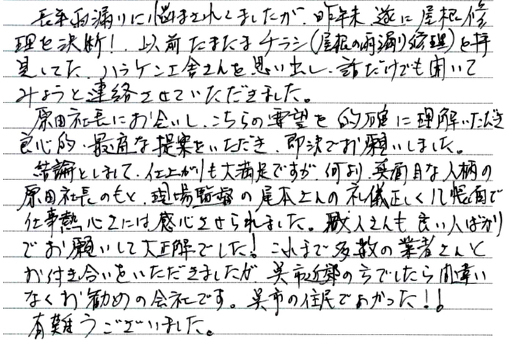 長年雨漏りに悩まされてきましたが、昨年末 遂に屋根修
理を決断! 以前たまたまチラシ(屋根の雨漏り修理)を拝
見してた、ハラケン工舎さんを思い出し、話だけでも聞いて
みようと連絡させていただきました。
原田社長にお会いし、こちらの要望を的確に理解いただき
良心的・最高な提案をいただき、即決でお願いしました。
結論としまして、仕上がりも大満足ですが、何より、真面目な人柄の
原田社長のもと、現場監督の尾本さんの礼儀正しく几帳面で
仕事熱心さには感心させられました。職人さんも良い人ばかり
でお願いして大正解でした! これまで多数の業者さんと
お付き合いをいただきましたが 呉市近郊の方でしたら間違い
なくお勧めの会社です。呉市の住民でよかった!!
有難うございました。